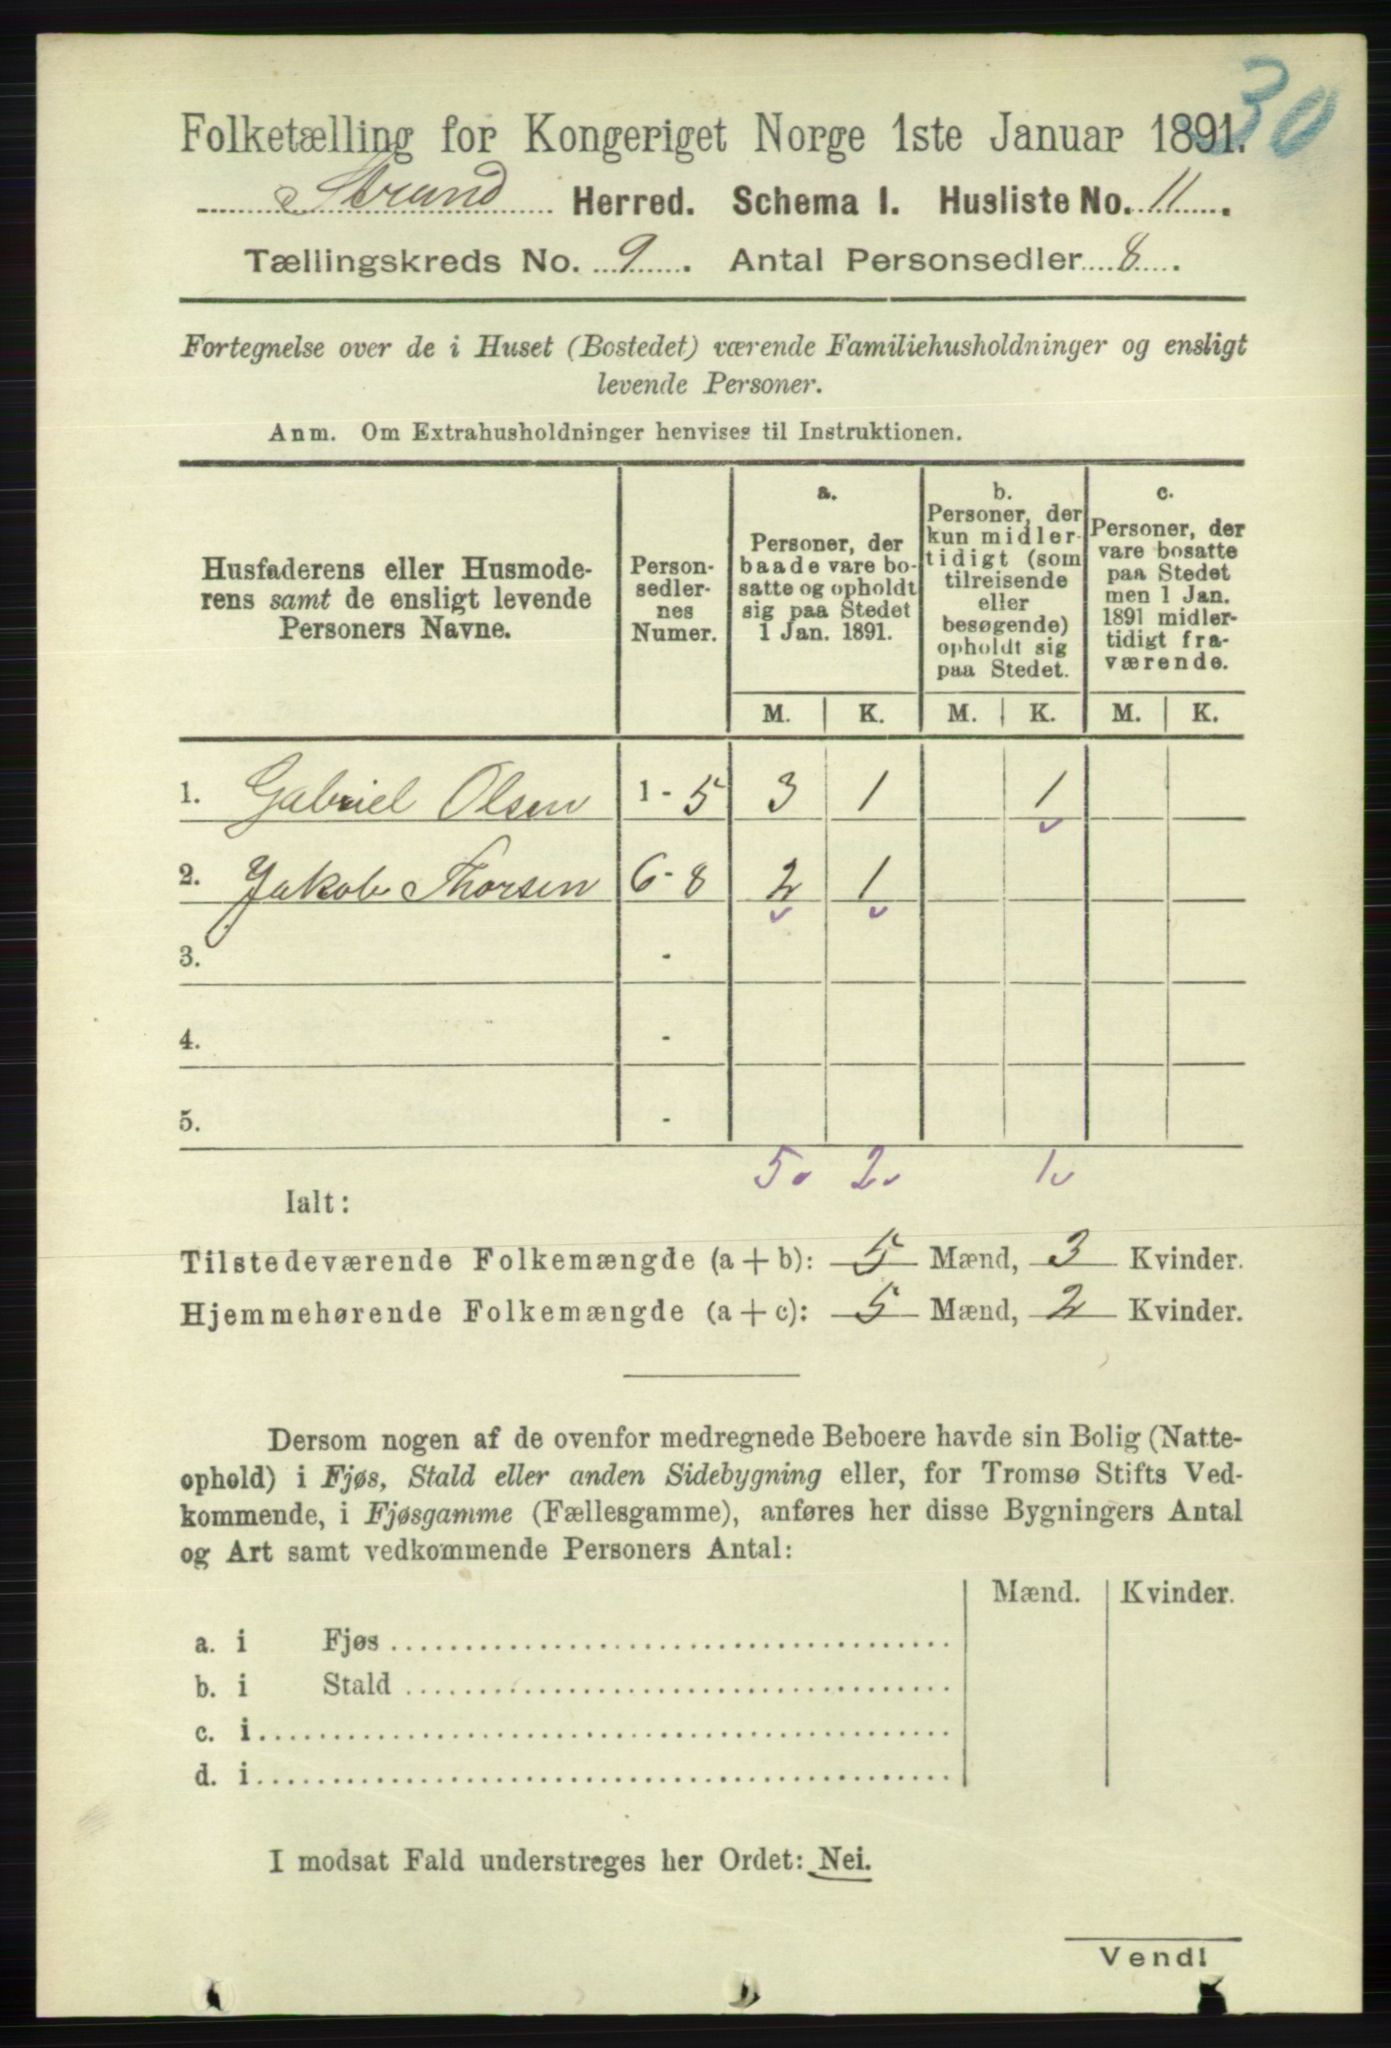 30
Folketælling for Kongeriget Norge 1ste Januar 1891.
Strand Herred. Schema I. Husliste No. 11.
Tællingskreds No. 9. Antal Personsedler 8.
Fortegnelse over de i Huset (Bostedet) værende Familiehusholdninger og ensligt
levende Personer.
Anm. Om Extrahusholdninger henvises til Instruktionen.
Husfaderens eller Husmode-
rens samt de ensligt levende
Personers Navne.
Person-
sedler-
nes
Numer.
a.
Personer, der
baade vare bo-
satte og opholdt
sig paa Stedet
1 Jan. 1891.
b.
Personer, der
kun midler-
tidigt (som
tilreisende
eller
besøgende)
opholdt sig
paa Stedet.
c.
Personer, der
vare bosatte
paa Stedet
men 1 Jan.
1891 midler-
tidigt fra-
værende.
M. K. M. K. M. K.
1. Gabriel Olsen 1 - 5 3 1 1
2. Jakob Thorsen 6 - 8 2 1
3. -
4. -
5. -
5 2 1
Ialt:
Tilstedeværende Folkemængde (a + b): 5 Mænd, 3 Kvinder.
Hjemmehørende Folkemængde (a + c): 5 Mænd, 2 Kvinder.
Dersom nogen af de ovenfor medregnede Beboere havde sin Bolig (Natte-
ophold) i Fjøs, Stald eller anden Sidebygning eller, for Tromsø Stifts Ved-
kommende, i Fjøsgamme (Fællesgamme), anføres her disse Bygningers Antal
og Art samt vedkommende Personers Antal:
Mænd. Kvinder.
a. i Fjøs
b. i Stald
c. i
d. i
I modsat Fald understreges her Ordet: Nei.
Vend!